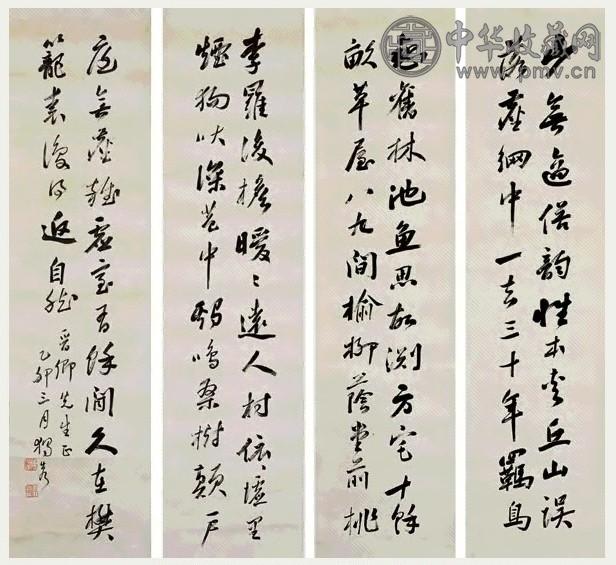 中华收藏网
www.pmv.cn
少無適俗韻性本愛丘山誤
落塵網中一去三十年羈鳥
戀舊林池魚思故淵方宅十餘
畝草屋八九間榆柳蔭堂前桃
李羅後檐曖〻遠人村依〻墟里
煙狗吠深巷中鷄鳴桑樹顛戶
庭無塵雜虛室有餘閒久在樊
籠裏復得返自然
晉卿先生正
乙卯三月獨秀